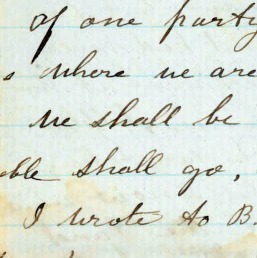 of one party
where we are
we shall be
ble shall go,
I wrote to B.